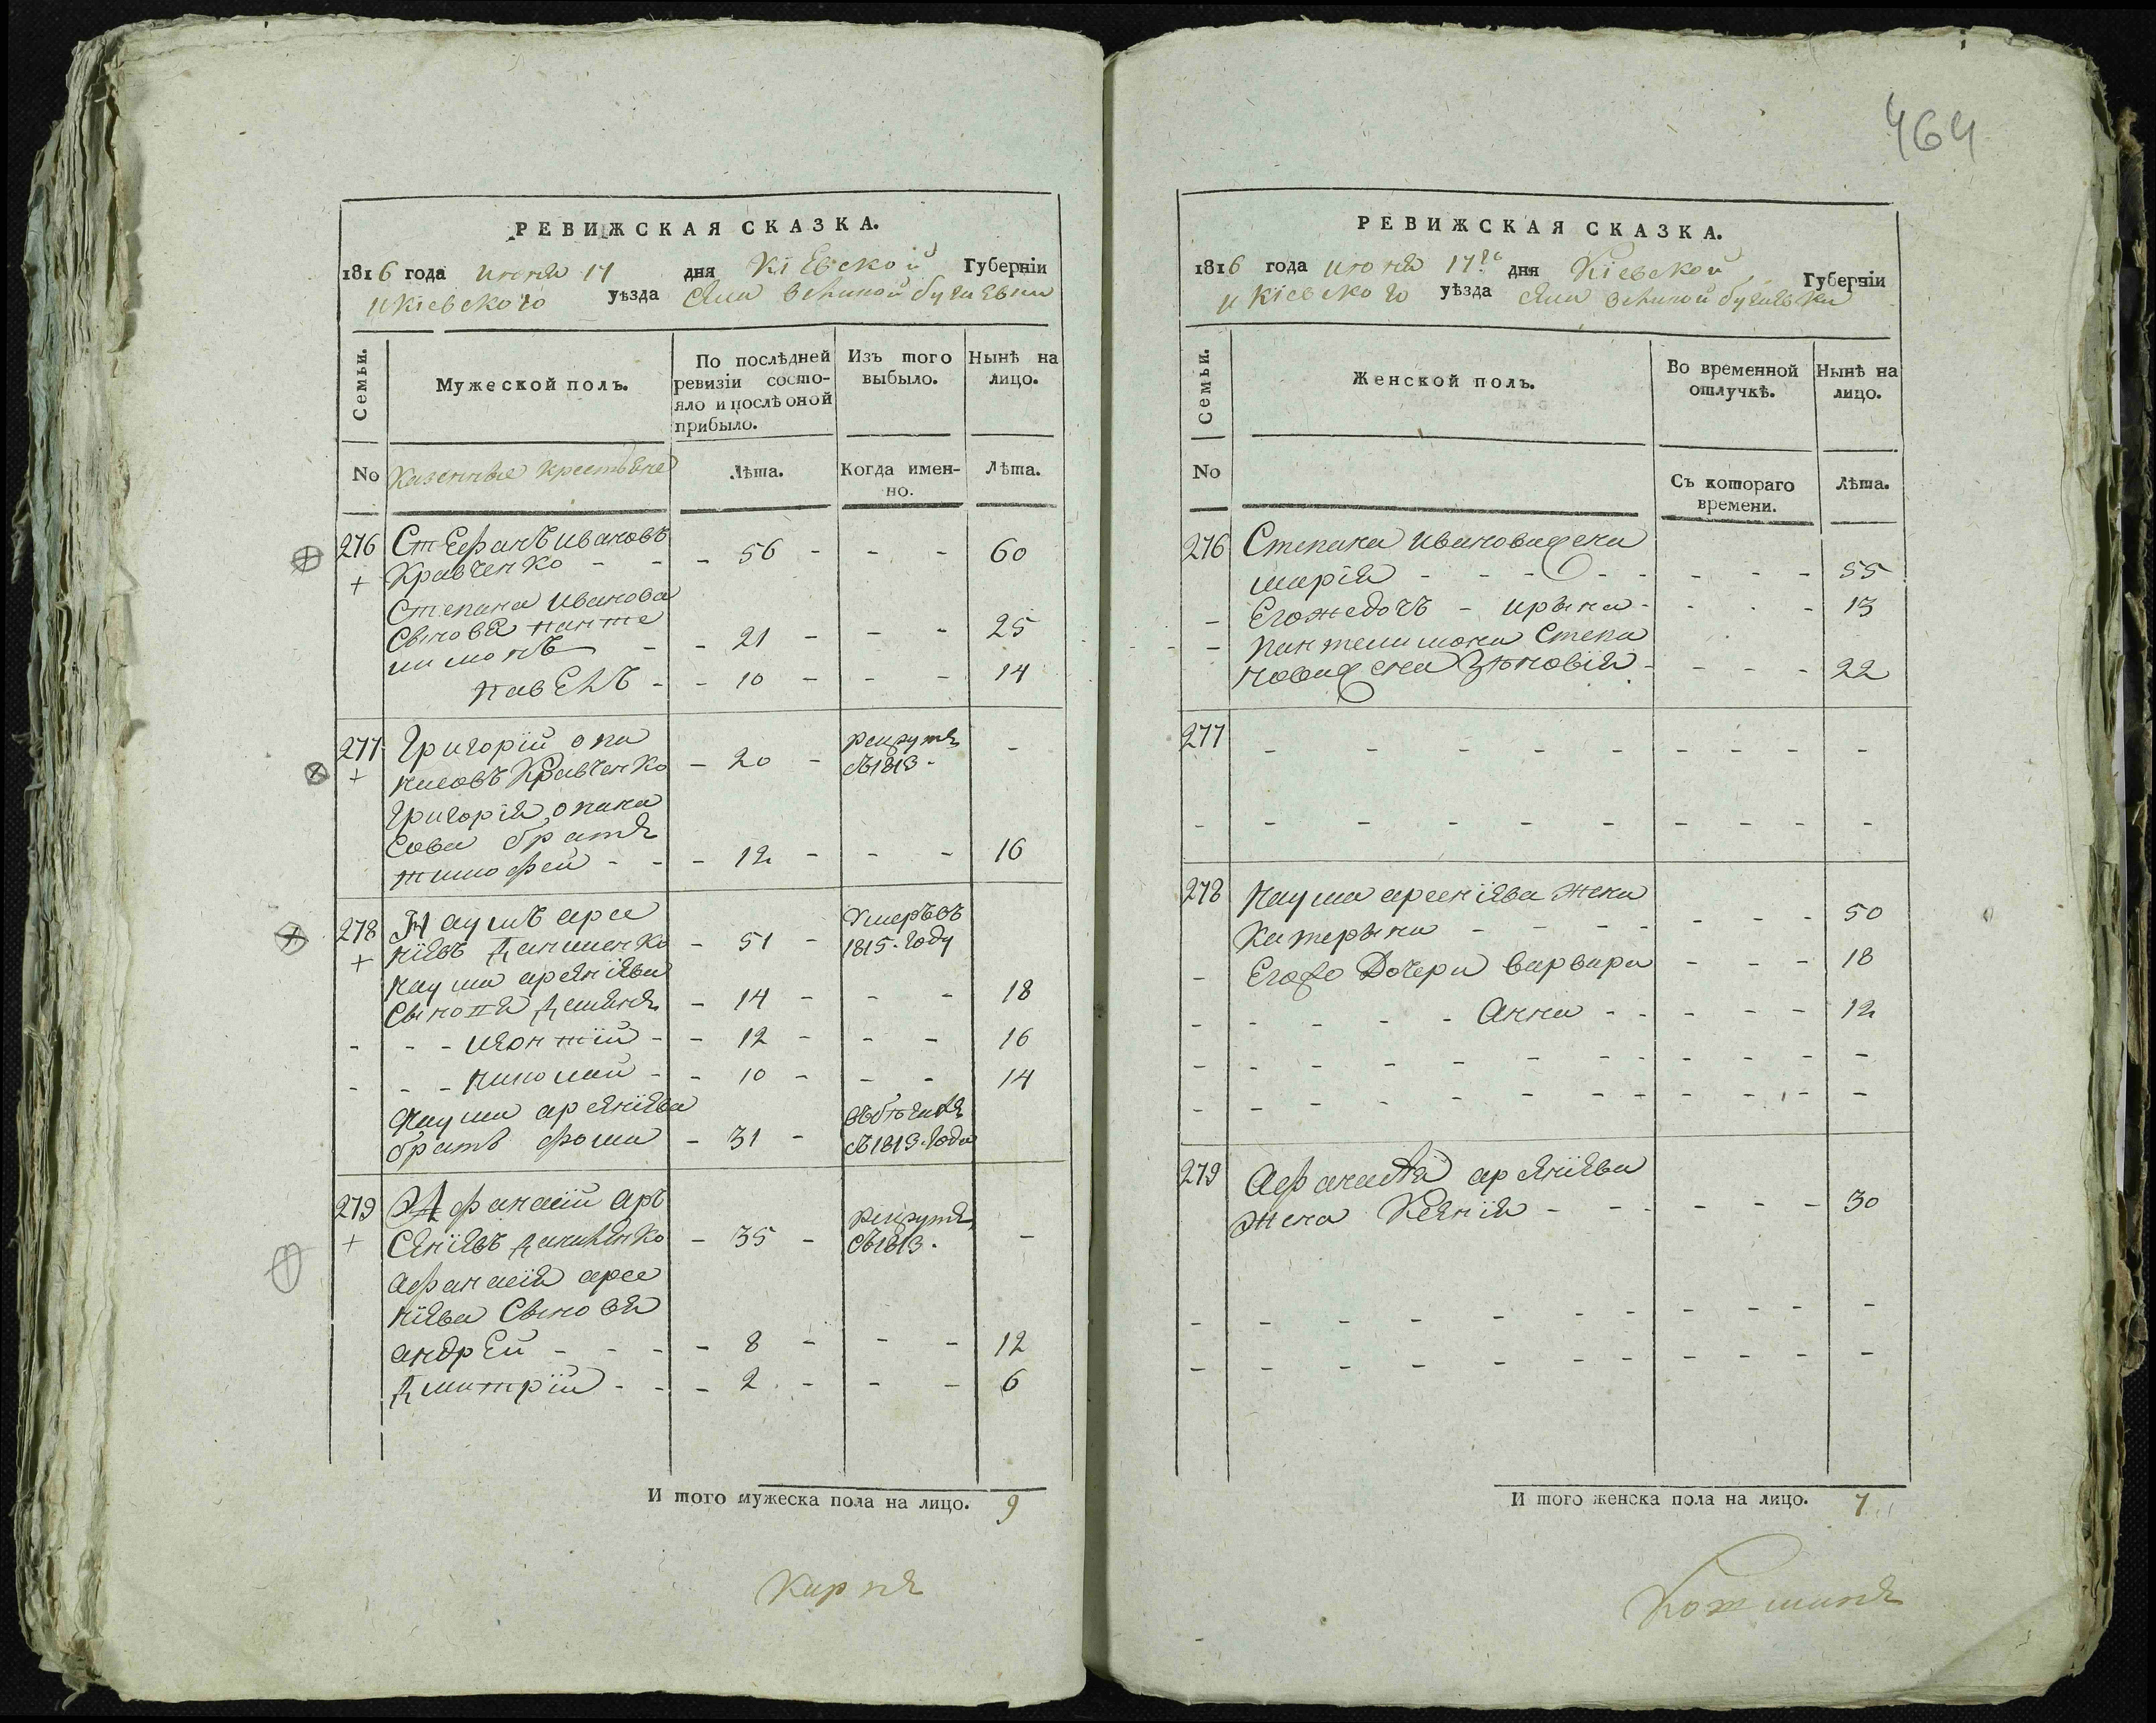 464
РЕВИЖСКАЯ СКАЗКА.
1816 года июня 17 дня Кіевской Губерніи
и Кіевского уѣзда села великой бугаевки
Семьи.
Мужеской полъ.
По послѣдней ревизіи состо-
яло и послѣ оной
прибыло.
Изъ того
выбыло.
Нынѣ на
лицо.
No Казенные крестьяне
Лѣта.
Когда имен-
но.
Лѣта.
276 Стефанъ ивановъ
Кравченко - - - 56 - - - 60
Степана иванова
Сынове панте
лимонъ - - 21 - - - 25
павелъ - - 10 - - - 14
277 григорій опа
насовъ Кравченко - 20 - рекрутъ съ 1813 - -
григорія опана
сова братъ
тимофей - - - 12 - - - 16
278 Наумъ арсе
ніевъ Даниленко - 51 - Умеръ въ 1815 году
наума арсеніева
Сынове Демянъ - 14 - - - 18
- - - леонтій - - 12 - - - 16
- - - николай - - 10 - - - 14
наума арсеніева
братъ фома - 31 - съ 1813 года
279 Афанасій аръ
сеніевъ Даниленко - 35 - рекрутъ съ 1813 - -
афанасія арсе
ніева Сыновя
андрей - - - - 8 - - - 12
Дмитрій - - - 2 - - - 6
И того мужеска пола на лицо. 9
Карпъ
РЕВИЖСКАЯ СКАЗКА.
1816 года июня 17го дня Кіевской Губерніи
и Кіевского уѣзда села великой бугаевки
Семьи.
Женской полъ.
Во временной
отлучкѣ.
Нынѣ на
лицо.
No
Съ котораго
времени.
Лѣта.
276 Степана иванова жена
марія - - - - - - - - 55
- Егожедочъ - ирына - - - - 13
- пантелимона Степа
нова жена Зѣновія - - - - 22
277 - - - - - - - - -
- - - - - - - - - -
278 наума арсеніева жена
Катерына - - - - - - - 50
- Егоже Дочери варвара - - - 18
- - - - - Анна - - - - - 12
- - - - - - - - - - -
- - - - - - - - - - -
279 Афанасія арсеніева
жена Ксенія - - - - - - 30
- - - - - - - - - - -
- - - - - - - - - - -
И того женска пола на лицо. 7